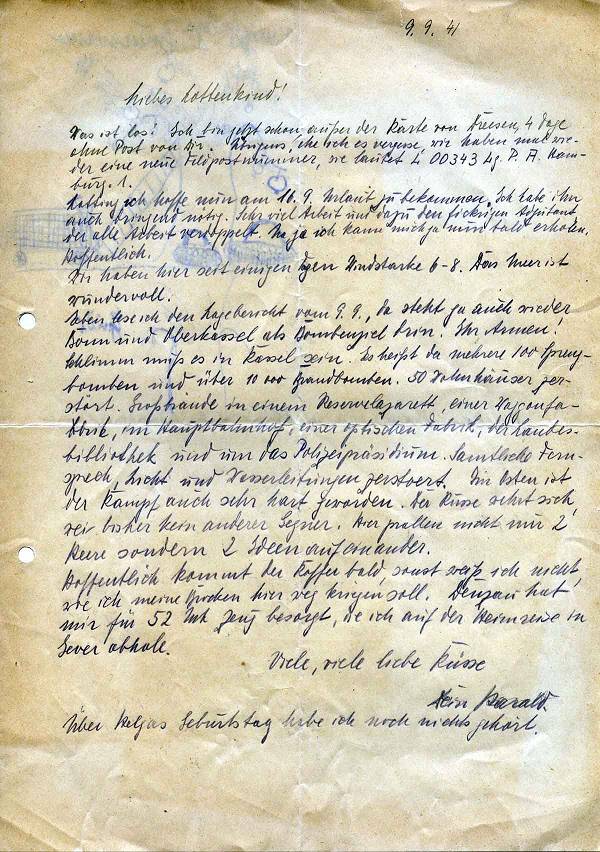 9. 9. 41
Liebes Lottenkind!
Was ist los? Ich bin jetzt schon, außer der Karte von Dreesen, 4 Tage
ohne Post von dir. Übrigens, ehe ich es vergesse, wir haben mal wie-
der eine neue Feldpostnummer, sie lautet L 00343 Lg. P. A. Ham-
burg. 1.
ich hoffe nun am 16. 9. Urlaub zu bekommen. Ich habe ihn
auch dringend nötig. Sehr viel Arbeit und dazu den fickrigen Adjutant,
der alle Arbeit verdoppelt. Na ja ich kann mich ja nun bald erholen.
Hoffentlich.
Wir haben hier seit einigen Tagen Windstärke 6-8. Das Meer ist
wundervoll.
Eben lese ich den Lagebericht vom 9. 9., da steht ja auch wieder
Bonn und Oberkassel als Bombenziel drin. Ihr Armen!
Schlimm muß es in Kassel sein. Es heißt da mehrere 100 Spreng-
bomben und über 10 000 Brandbomben. 50 Wohnhäuser zer-
stört. Großbrände in einem Reservelazarett, einer Waggonfa-
brik, im Hauptbahnhof, einer optischen Fabrik, der Landes-
bibliothek und um das Polizeipräsidium. Sämtliche Fern-
sprech, Licht und Wasserleitungen zerstoert. Im Osten ist
der Kampf auch sehr hart geworden. Der Russe wehrt sich,
wie bisher kein anderer Gegner. Hier prallen nicht nur 2
Heere sondern 2 Ideen aufeinander.
Hoffentlich kommt der Koffer bald, sonst weiß ich nicht,
wie ich meine Brocken hier weg kriegen soll. hat
mir für 52 Mk Zeug besorgt, die ich auf der Heimreise in
Jever abhole.
Viele, viele liebe Küsse
Dein Harald.
Über Helgas Geburtstag habe ich noch nichts gehört.